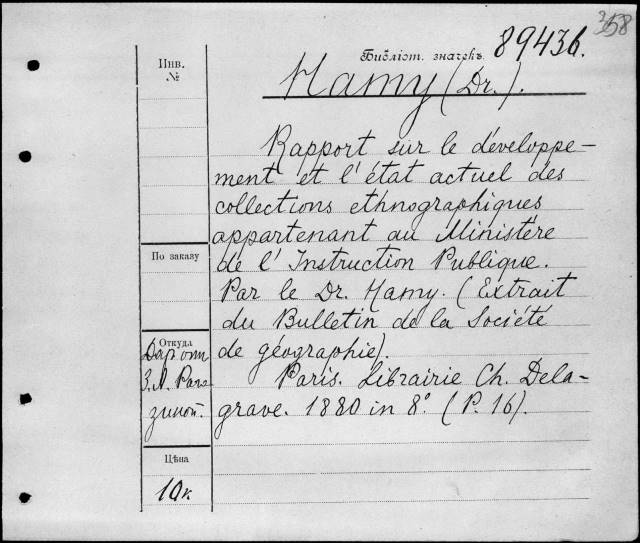 358
Библіот. значекъ 89436.
Hamy (Dr.).
Инв.
№
Rapport sur le développe-
ment et l'état actuel des
collections ethnographiques
appartenant au Ministère
de l'Instruction Publique.
Par le Dr. Hamy. (Extrait
du Bulletin de la Société
de géographie).
Paris. Librairie Ch. Dela-
grave. 1880 in 8°. (P. 16).
По заказу
Откуда
Цѣна
10к